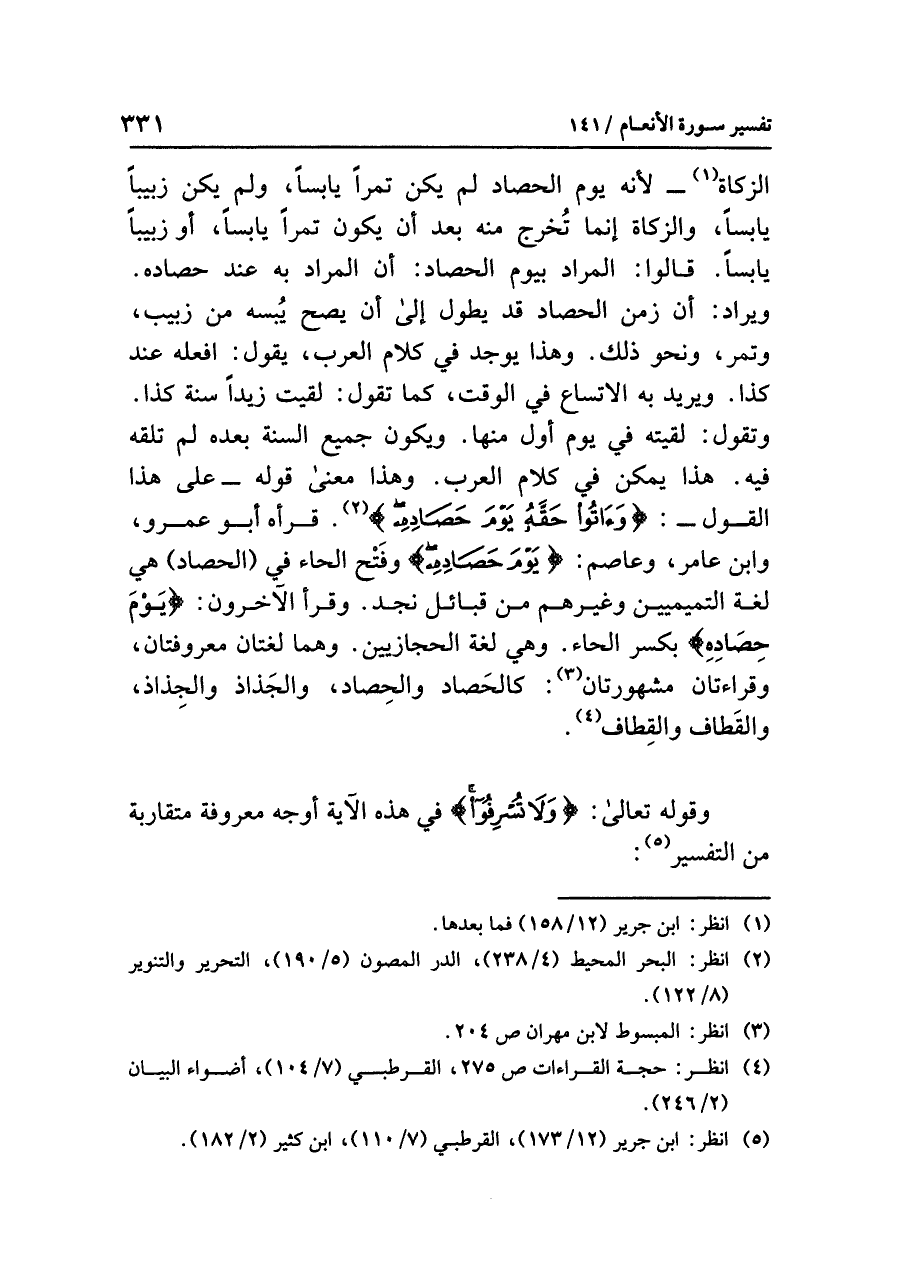 تفسير سورة الأنعام / ١٤١ ٣٣١
الزكاة(١) ــ لأنه يوم الحصاد لم يكن تمراً يابساً، ولم يكن زبيباً
يابساً، والزكاة إنما تُخرج منه بعد أن يكون تمراً يابساً، أو زبيباً
يابساً. قالوا: المراد بيوم الحصاد: أن المراد به عند حصاده.
ويراد: أن زمن الحصاد قد يطول إلىٰ أن يصح يُبسه من زبيب،
وتمر، ونحو ذلك. وهذا يوجد في كلام العرب، يقول: افعله عند
كذا. ويريد به الاتساع في الوقت، كما تقول: لقيت زيداً سنة كذا.
وتقول: لقيته في يوم أول منها. ويكون جميع السنة بعده لم تلقه
فيه. هذا يمكن في كلام العرب. وهذا معنىٰ قوله ــ على هذا
القول ــ : ﴿ وَءَاتُوا۟ حَقَّهُۥ يَوْمَ حَصَادِهِۦۖ ﴾(٢). قرأه أبو عمرو،
وابن عامر، وعاصم: ﴿ يَوْمَ حَصَادِهِۦۖ﴾ وفَتْح الحاء في (الحصاد) هي
لغة التميميين وغيرهم من قبائل نجد. وقرأ الآخرون: ﴿يَوْمَ
حِصَادِهِ﴾ بكسر الحاء. وهي لغة الحجازيين. وهما لغتان معروفتان،
وقراءتان مشهورتان(٣): كالحَصاد والحِصاد، والجَذاذ والجِذاذ،
والقَطاف والقِطاف(٤).
وقوله تعالىٰ: ﴿ وَلَا تُسْرِفُوٓا۟ۚ﴾ في هذه الآية أوجه معروفة متقاربة
من التفسير(٥):
(١) انظر: ابن جرير (١٥٨/١٢) فما بعدها.
(٢) انظر: البحر المحيط (٢٣٨/٤)، الدر المصون (١٩٠/٥)، التحرير والتنوير
(١٢٢/٨).
(٣) انظر: المبسوط لابن مهران ص ٢٠٤.
(٤) انظر: حجة القراءات ص ٢٧٥، القرطبي (١٠٤/٧)، أضواء البيان
(٢٤٦/٢).
(٥) انظر: ابن جرير (١٧٣/١٢)، القرطبي (١١٠/٧)، ابن كثير (١٨٢/٢).